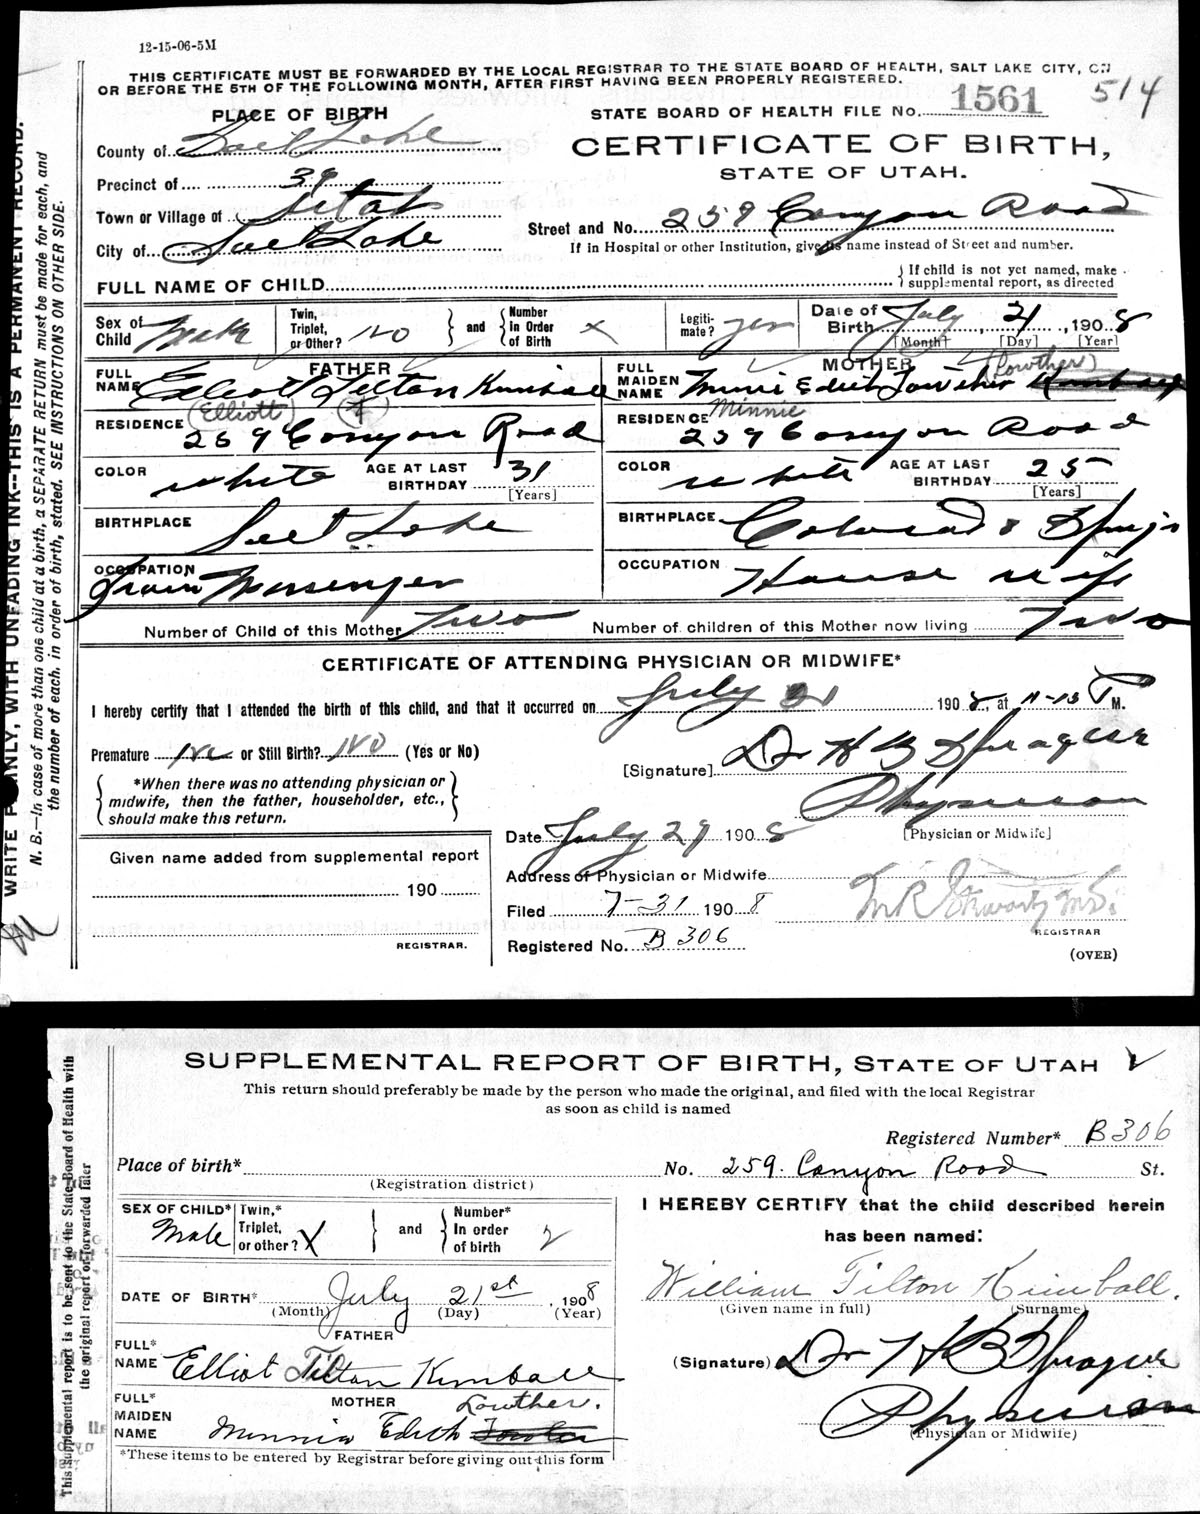 12-15-06-5M
THIS CERTIFICATE MUST BE FORWARDED BY THE LOCAL REGISTRAR TO THE STATE BOARD OF HEALTH, SALT LAKE CITY, ON
OR BEFORE THE 5TH OF THE FOLLOWING MONTH, AFTER FIRST HAVING BEEN PROPERLY REGISTERED.
514
PLACE OF BIRTH
STATE BOARD OF HEALTH FILE No. 1561
County of Salt Lake
CERTIFICATE OF BIRTH,
Precinct of 39
STATE OF UTAH.
Town or Village of Utah
Street and No. 259 Canyon Road
City of Salt Lake
If in Hospital or other Institution, give its name instead of Street and number.
FULL NAME OF CHILD
If child is not yet named, make supplemental report, as directed
Sex of Child Male
Twin, Triplet, or Other? No and Number In Order of Birth X
Legitimate? yes
Date of Birth July, 21, 1908
[Month] [Day] [Year]
FATHER
FULL NAME Elliott Tilton Kimball
(Elliott) (T)
RESIDENCE 259 Canyon Road
COLOR white AGE AT LAST BIRTHDAY 31
[Years]
BIRTHPLACE Salt Lake
OCCUPATION Train Messenger
MOTHER (Lowther)
FULL MAIDEN NAME Minnie Edith Lowther Kimball
Minnie
RESIDENCE 259 Canyon Road
COLOR white AGE AT LAST BIRTHDAY 25
[Years]
BIRTHPLACE Colorado Springs
OCCUPATION House wife
Number of Child of this Mother Two Number of children of this Mother now living Two
CERTIFICATE OF ATTENDING PHYSICIAN OR MIDWIFE*
I hereby certify that I attended the birth of this child, and that it occurred on July 21 1908, at 11-15 P M.
Premature No or Still Birth? No (Yes or No)
[Signature] Dr H B Sprague
Physician
[Physician or Midwife]
*When there was no attending physician or
midwife, then the father, householder, etc.,
should make this return.
Date July 29 1908
Given name added from supplemental report
190
REGISTRAR.
Address of Physician or Midwife
Filed 7-31 1908
M R Stewart M.D.
REGISTRAR
Registered No. B 306
(OVER)
WRITE PLAINLY, WITH UNFADING INK--THIS IS A PERMANENT RECORD.
N. B.—In case of more than one child at a birth, a SEPARATE RETURN must be made for each, and
the number of each, in order of birth, stated. SEE INSTRUCTIONS ON OTHER SIDE.
SUPPLEMENTAL REPORT OF BIRTH, STATE OF UTAH
This return should preferably be made by the person who made the original, and filed with the local Registrar
as soon as child is named
Registered Number* B306
Place of birth* No. 259. Canyon Road St.
(Registration district)
SEX OF CHILD* Male
Twin,* Triplet, or other? X and Number* In order of birth 2
I HEREBY CERTIFY that the child described herein
has been named:
DATE OF BIRTH* July 21st, 1908
(Month) (Day) (Year)
William Tilton Kimball.
(Given name in full) (Surname)
FATHER
FULL* NAME Elliot Tilton Kimball
(Signature) Dr H B Sprague
Physician
(Physician or Midwife)
MOTHER Lowther.
FULL* MAIDEN NAME Minnie Edith
*These items to be entered by Registrar before giving out this form
This supplemental report is to be sent to the State Board of Health with
the original report or forwarded later